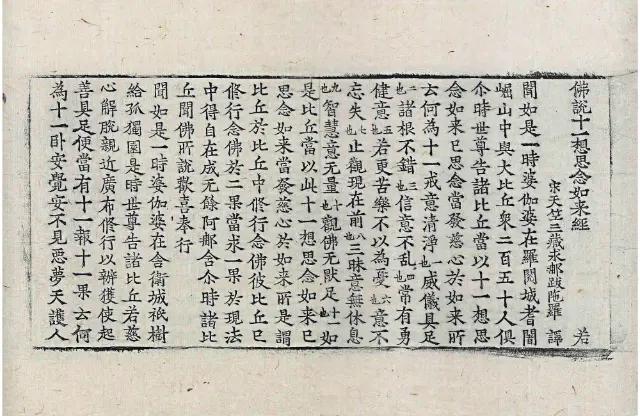 佛説十一想思念如来經 若
宋天竺三藏求郍跋陁羅 譯
聞如是一時婆伽婆在羅閱城耆闍
崛山中與大比丘衆二百五十人俱
尒時世尊告諸比丘當以十一想思
念如来已思念當發慈心於如来所
云何為十一戒意清淨一也威儀具足
二也諸根不錯三也信意不亂四也常有勇
健意五也若更苦樂不以為憂六也意不
忘失七也止觀現在前八也三昧意無休息
九也智慧意无量十也觀佛无猒足十一也如
是比丘當以此十一想思念如来已
思念如来當發慈心於如来所是謂
比丘於比丘中修行念佛彼比丘已
修行念佛於二果當求一果於現法
中得自在成无餘阿郍含尒時諸比
丘聞佛所說歡喜奉行
聞如是一時婆伽婆在舍衛城祇樹
給孤獨園是時世尊告諸比丘若慈
心解脫親近廣布修行以辦獲使起
善具足便當有十一報十一果云何
為十一卧安覺安不見惡夢天護人